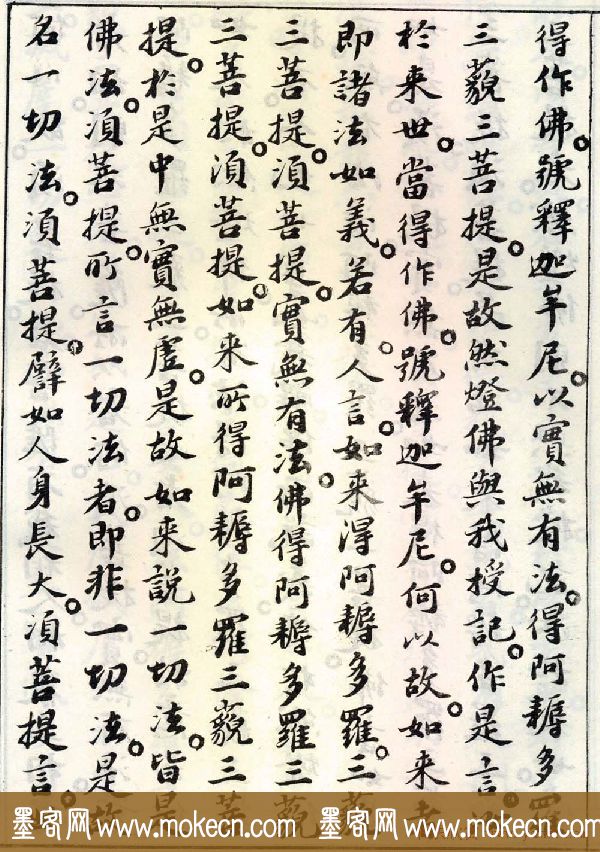 得作佛號釋迦牟尼以實無有法得阿耨多羅
三藐三菩提是故然燈佛與我授記作是言
於来世當得作佛號釋迦牟尼何以故如来者
即諸法如義若有人言如来得阿耨多羅三藐
三菩提須菩提實無有法佛得阿耨多羅三藐
三菩提須菩提如来所得阿耨多羅三藐三菩
提於是中無實無虛是故如来說一切法皆是
佛法須菩提所言一切法者即非一切法是故
名一切法須菩提譬如人身長大須菩提言
墨客网 www.mokecn.com 墨客网 www.mokecn.com 墨客网 www.mokecn.com